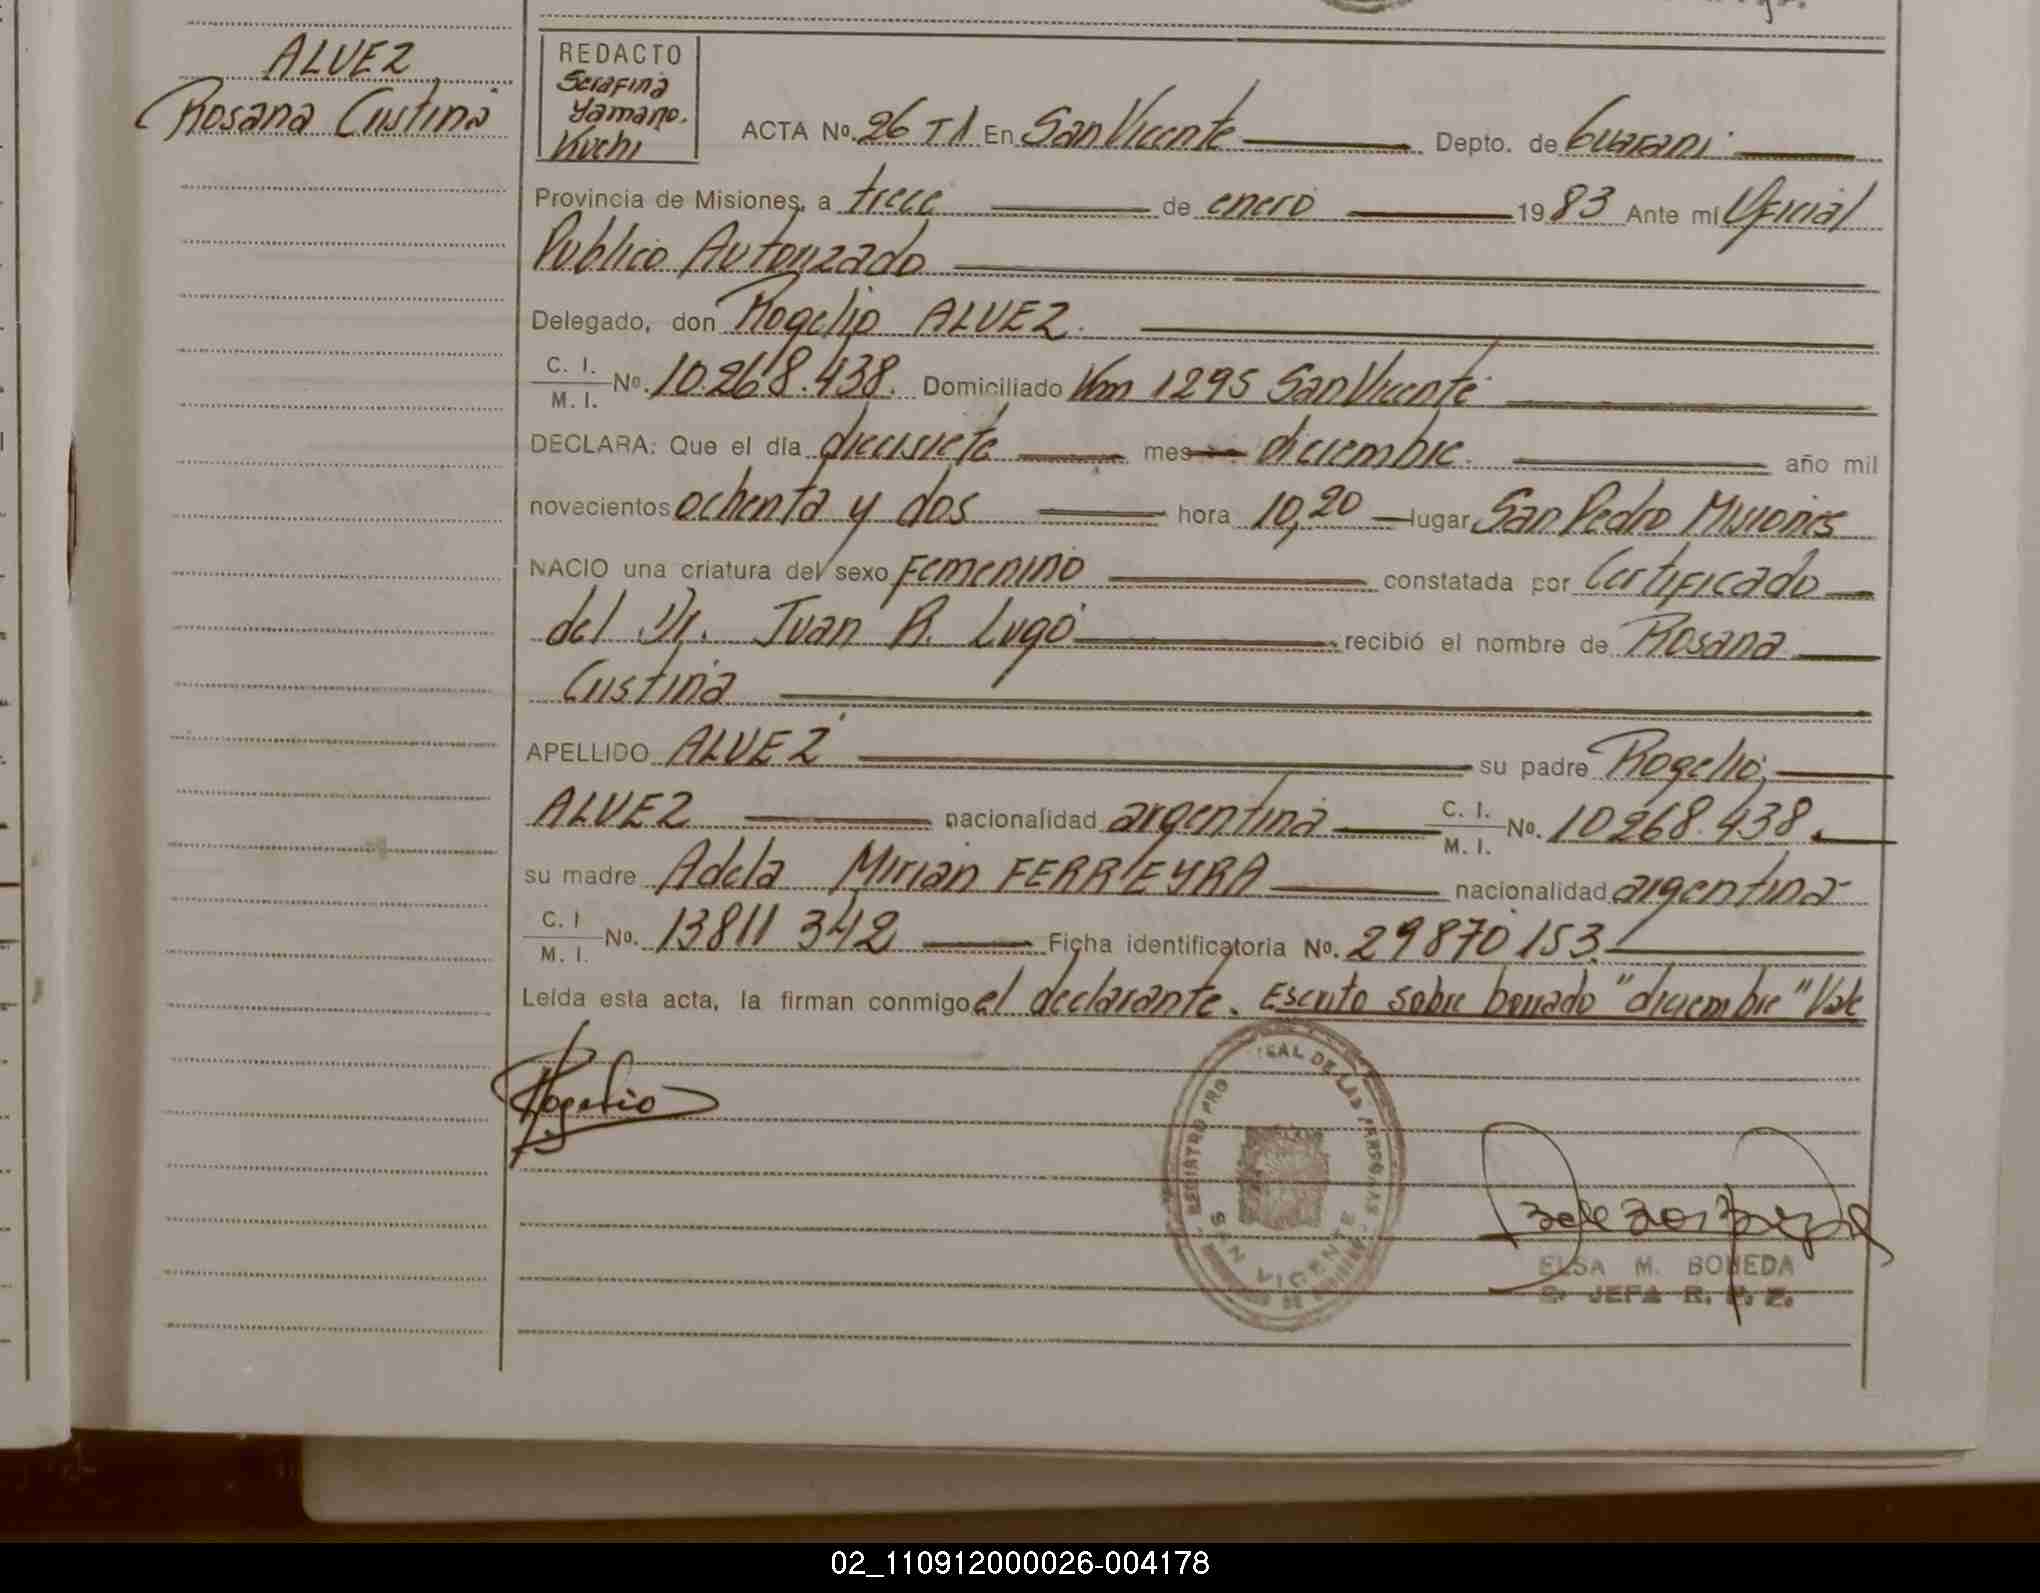 ALVEZ
Rosana Cristina
REDACTO
Serafina
Yamano.
Kuchi
ACTA No. 26 T1 En San Vicente Depto. de Guarani
Provincia de Misiones, a trece de enero 1983 Ante mi Oficial
Publico Autorizado
Delegado, don Rogelio ALVEZ.
C. I.
M. I. No. 10.268.438. Domiciliado Km 1295 San Vicente
DECLARA: Que el día diecisiete mes diciembre. año mil
novecientos ochenta y dos hora 10,20 lugar San Pedro Misiones
NACIO una criatura del sexo Femenino constatada por Certificado
del Dr. Juan R. Lugo recibió el nombre de Rosana
Cristina
APELLIDO ALVEZ su padre Rogelio
ALVEZ nacionalidad argentina C. I. M. I. No. 10268.438.
su madre Adela Mirian FERREYRA nacionalidad argentina
C. I M. I. No. 13811 342 Ficha identificatoria No. 29870 153.
Leída esta acta, la firman conmigo el declarante. Escrito sobre borrado "diciembre" Vale
Rogelio
REGISTRO PRO DE LAS PERSONAS
SAN VICENTE
ELSA M. BONEDA
JEFA R. P.
02_110912000026-004178